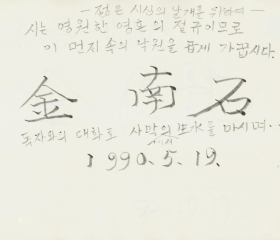 — 젊은 시신의 날개를 위하여 —
시는 영원한 영혼의 절규이므로
이 먼지 속의 낙원을 곱게 가꿉시다.
金 南 石
독자와의 대화로 사막의 생수를 마시며…
1990. 5. 19.